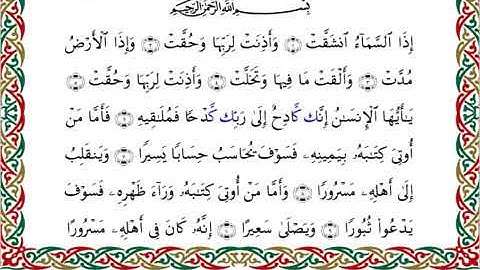 بِسْمِ اللَّهِ الرَّحْمَٰنِ الرَّحِيمِ
إِذَا السَّمَآءُ انشَقَّتْ ۝ وَأَذِنَتْ لِرَبِّهَا وَحُقَّتْ ۝ وَإِذَا الْأَرْضُ
مُدَّتْ ۝ وَأَلْقَتْ مَا فِيهَا وَتَخَلَّتْ ۝ وَأَذِنَتْ لِرَبِّهَا وَحُقَّتْ ۝
يَٰٓأَيُّهَا الْإِنسَٰنُ إِنَّكَ كَادِحٌ إِلَىٰ رَبِّكَ كَدْحًا فَمُلَٰقِيهِ ۝ فَأَمَّا مَنْ
أُوتِىَ كِتَٰبَهُۥ بِيَمِينِهِۦ ۝ فَسَوْفَ يُحَاسَبُ حِسَابًا يَسِيرًا ۝ وَيَنقَلِبُ
إِلَىٰٓ أَهْلِهِۦ مَسْرُورًا ۝ وَأَمَّا مَنْ أُوتِىَ كِتَٰبَهُۥ وَرَآءَ ظَهْرِهِۦ ۝ فَسَوْفَ
يَدْعُوا۟ ثُبُورًا ۝ وَيَصْلَىٰ سَعِيرًا ۝ إِنَّهُۥ كَانَ فِىٓ أَهْلِهِۦ مَسْرُورًا